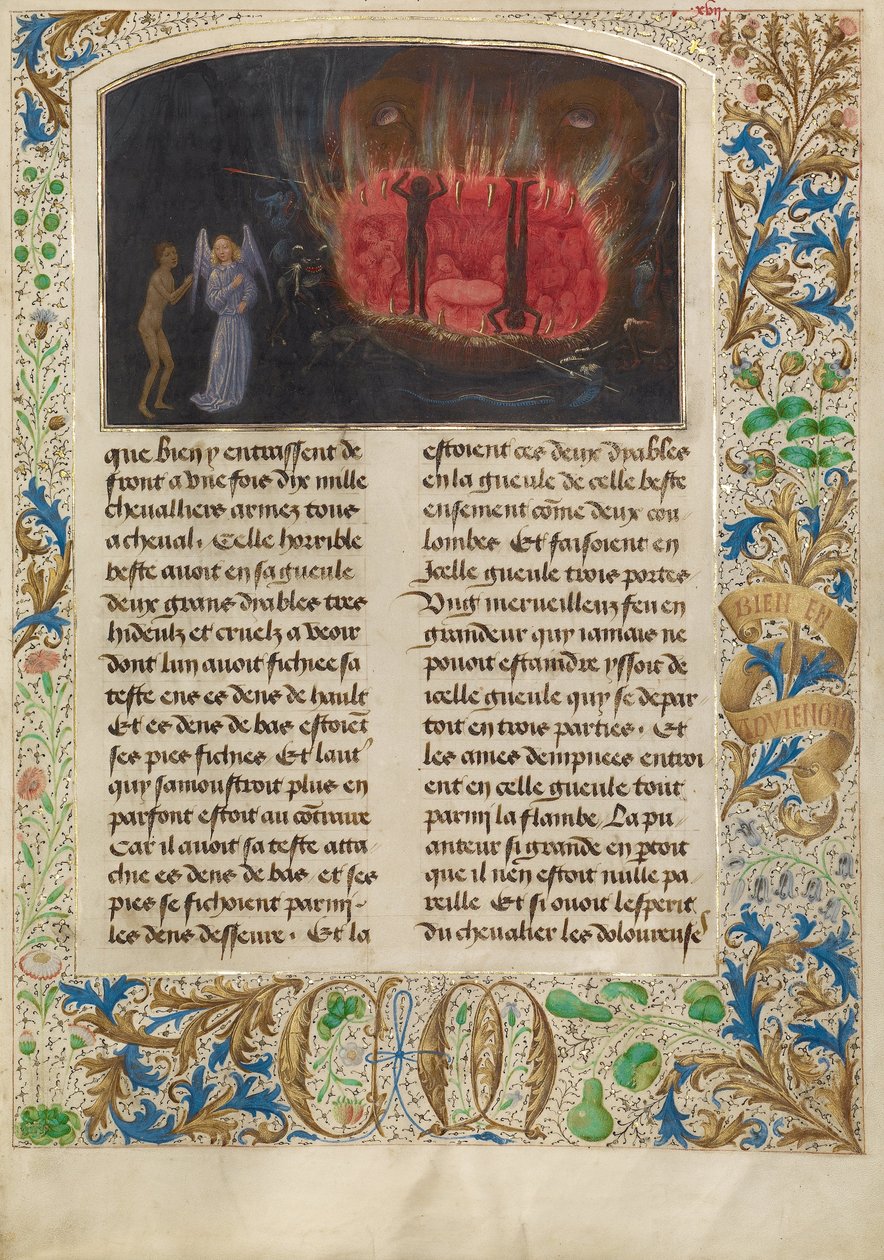 xvii
que bien y entrassent de
front a vne fois dix mille
chevalliers armez tous
a cheual. Celle horrible
beste auoit en sa gueule
deux grans dyables tres
hideulz et cruelz a veoir
dont lun auoit fichiee sa
teste ens es dens de hault
Et es dens de bas estoiēt
ses pies fichies Et laut
quy samoustroit plus en
parfont estoit au cōtraire
Car il auoit sa teste atta
chie es dens de bas et ses
pies se fichoient parmi
les dens desseure. Et la
estoient ces deux dyables
en la gueule de celle beste
ensement cōme deux cou
lombes Et faisoient en
Icelle gueule trois portes
Vng merueilleux feu en
grandeur quy iamais ne
pouoit estaindre yssoit de
icelle gueule quy se depar
toit en trois parties. Et
les ames dempnees entroi
ent en celle gueule tout
parmi la flambe. La pu
anteur si grande en ꝑtoit
que il nen estoit nulle pa
reille Et si ouoit lesperit
du cheualier les doloureuses
BIEN EN
ADVIENGNE